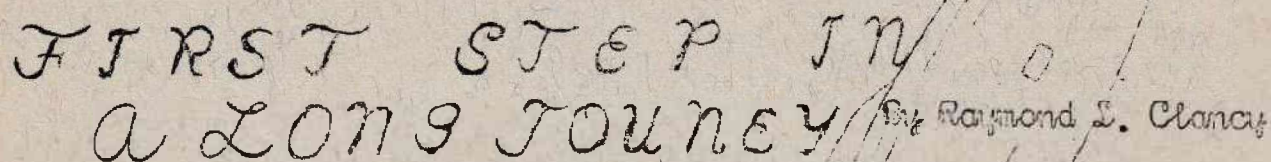 FIRST STEP IN
A LONG JOUNEY By Raymond L. Clancy